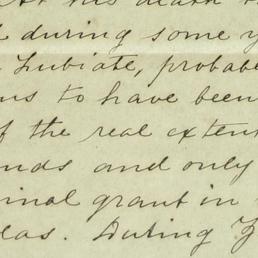 At his death t
d during some y
Zubiate, probabe
ns to have been
f the real extent
nds and only
inal grant in
las. During Z